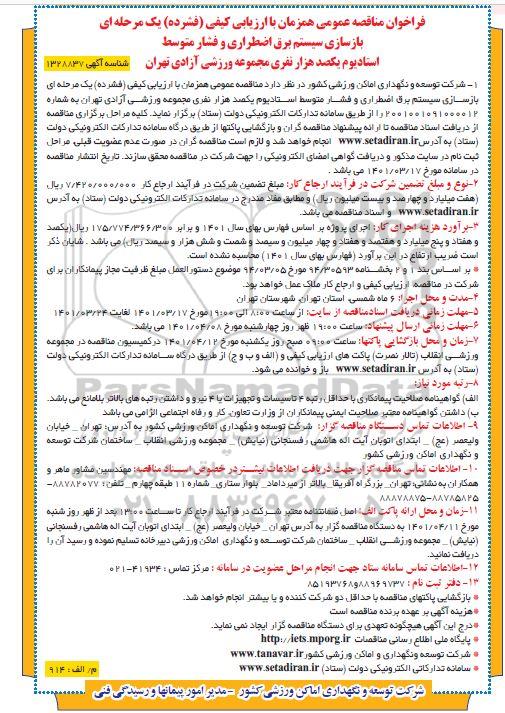 فراخوان مناقصه عمومی همزمان با ارزیابی کیفی (فشرده) یک مرحله ای
بازسازی سیستم برق اضطراری و فشار متوسط
استادیوم یکصد هزار نفری مجموعه ورزشی آزادی تهران
شناسه آگهی ۱۳۲۸۸۳۷
۱- شرکت توسعه و نگهداری اماکن ورزشی کشور در نظر دارد مناقصه عمومی همزمان با ارزیابی کیفی (فشرده) یک مرحله ای
بازسازی سیستم برق اضطراری و فشار متوسط استادیوم یکصد هزار نفری مجموعه ورزشی آزادی تهران به شماره
۲۰۰۱۰۰۱۰۹۱۰۰۰۰۱۲ را از طریق سامانه تدارکات الکترونیکی دولت (ستاد) برگزار نماید. کلیه مراحل برگزاری مناقصه
از دریافت اسناد مناقصه تا ارائه پیشنهاد مناقصه گران و بازگشایی پاکتها از طریق درگاه سامانه تدارکات الکترونیکی دولت
(ستاد) به آدرس www.setadiran.ir انجام خواهد شد و لازم است مناقصه گران در صورت عدم عضویت قبلی، مراحل
ثبت نام در سایت مذکور و دریافت گواهی امضای الکترونیکی را جهت شرکت در مناقصه محقق سازند. تاریخ انتشار مناقصه
در سامانه مورخ ۱۴۰۱/۰۳/۱۷ می باشد .
۲-نوع و مبلغ تضمین شرکت در فرآیند ارجاع کار: مبلغ تضمین شرکت در فرآیند ارجاع کار ۷/۴۲۰/۰۰۰/۰۰۰ ریال
(هفت میلیارد و چهارصد و بیست میلیون ریال) و مطابق مفاد مندرج در سامانه تدارکات الکترونیکی دولت (ستاد) به آدرس
www.setadiran.ir و اسناد مناقصه می باشد.
۳-برآورد هزینه اجرای کار: اجرای پروژه بر اساس فهارس بهای سال ۱۴۰۱ و برابر ۱۷۵/۷۷۴/۳۶۶/۳۰۰ ریال(یکصد
و هفتاد و پنج میلیارد و هفتصد و هفتاد و چهار میلیون و سیصد و شصت و شش هزار و سیصد ریال) می باشد . شایان ذکر
است ضریب ارتفاع در این برآورد (فهارس بهای سال ۱۴۰۱) محاسبه نشده است.
* بر اساس بند ۱ و ۲ بخشنامه ۹۴/۳۰۵۹۳ مورخ ۹۴/۰۳/۰۵ موضوع دستورالعمل مبلغ ظرفیت مجاز پیمانکاران برای
شرکت در مناقصه، ارزیابی کیفی و ارجاع کار ملاک عمل خواهد بود.
۴-مدت و محل اجرا: ۶ ماه شمسی، استان تهران، شهرستان تهران
۵-مهلت زمانی دریافت اسنادمناقصه از سایت: از ساعت ۸:۰۰ الی ۱۹:۰۰ مورخ ۱۴۰۱/۰۳/۱۷ لغایت ۱۴۰۱/۰۳/۲۴
۶-مهلت زمانی ارسال پیشنهاد: ساعت ۱۹:۰۰ ظهر روز چهارشنبه مورخ ۱۴۰۱/۰۴/۰۸ می باشد.
۷-زمان و محل بازگشایی پاکتها: ساعت ۰۹:۰۰ صبح روز یکشنبه مورخ ۱۴۰۱/۰۴/۱۲ درکمیسیون مناقصه در مجموعه
ورزشی انقلاب (تالار نصرت) پاکت های ارزیابی کیفی و (الف و ب و ج) از طریق درگاه سامانه تدارکات الکترونیکی دولت
(ستاد) به آدرس www.setadiran.ir باز و خوانده می شود.
۸-رتبه مورد نیاز:
الف) گواهینامه صلاحیت پیمانکاری با حداقل رتبه ۴ تاسیسات و تجهیزات یا ۴ نیرو و داشتن رتبه های بالاتر بلامانع می باشد.
ب) داشتن گواهینامه معتبر صلاحیت ایمنی پیمانکاران از وزارت تعاون، کار و رفاه اجتماعی الزامی می باشد
۹- اطلاعات تماس دستگاه مناقصه گزار: شرکت توسعه و نگهداری اماکن ورزشی کشور به آدرس: تهران _ خیابان
ولیعصر (عج) _ ابتدای اتوبان آیت اله هاشمی رفسنجانی (نیایش) _ مجموعه ورزشی انقلاب _ ساختمان شرکت توسعه
و نگهداری اماکن ورزشی کشور
۱۰- اطلاعات تماس مناقصه گزار جهت دریافت اطلاعات بیشتر در خصوص اسناد مناقصه: مهندسین مشاور ماهر و
همکاران به نشانی: تهران_ بزرگراه آفریقا_ بالاتر از میرداماد_ بلوار ستاری_ شماره ۱۱ طبقه چهارم _ تلفن: ۸۸۷۸۲۰۷۷-
۸۸۷۸۵۸۲۵-۸۸۸۷۸۸۷۵
۱۱-زمان و محل ارائه پاکت الف: اصل ضمانتنامه معتبر شرکت در فرآیند ارجاع کار تا ساعت ۱۳:۰۰ بعد از ظهر روز شنبه
مورخ ۱۴۰۱/۰۴/۱۱ به دستگاه مناقصه گزار به آدرس تهران _ خیابان ولیعصر (عج) _ ابتدای اتوبان آیت اله هاشمی رفسنجانی
(نیایش) _ مجموعه ورزشی انقلاب _ ساختمان شرکت توسعه و نگهداری اماکن ورزشی دبیرخانه تسلیم نموده و رسید آن را
دریافت نمایند.
۱۲-اطلاعات تماس سامانه ستاد جهت انجام مراحل عضویت در سامانه : مرکز تماس : ۴۱۹۳۴-۰۲۱
۱۳- دفتر ثبت نام : ۸۸۹۶۹۷۳۷و۸۵۱۹۳۷۶۸
* بازگشایی پاکتهای مناقصه با حداقل دو شرکت کننده و یا بیشتر انجام خواهد شد.
*هزینه آگهی بر عهده برنده مناقصه است
*درج این آگهی هیچگونه تعهدی برای دستگاه مناقصه گزار ایجاد نمی نماید.
* پایگاه ملی اطلاع رسانی مناقصات http://iets.mporg.ir
* شرکت توسعه ونگهداری و اماکن ورزشی کشور www.tanavar.ir
* سامانه تدارکاتی الکترونیکی دولت (ستاد) www.setadiran.ir
م/ الف : ۹۱۴
شرکت توسعه و نگهداری اماکن ورزشی کشور - مدیر امور پیمانها و رسیدگی فنی
ParsNamadData
۰۲۱-۸۸۳۴۹۶۷۰-۵